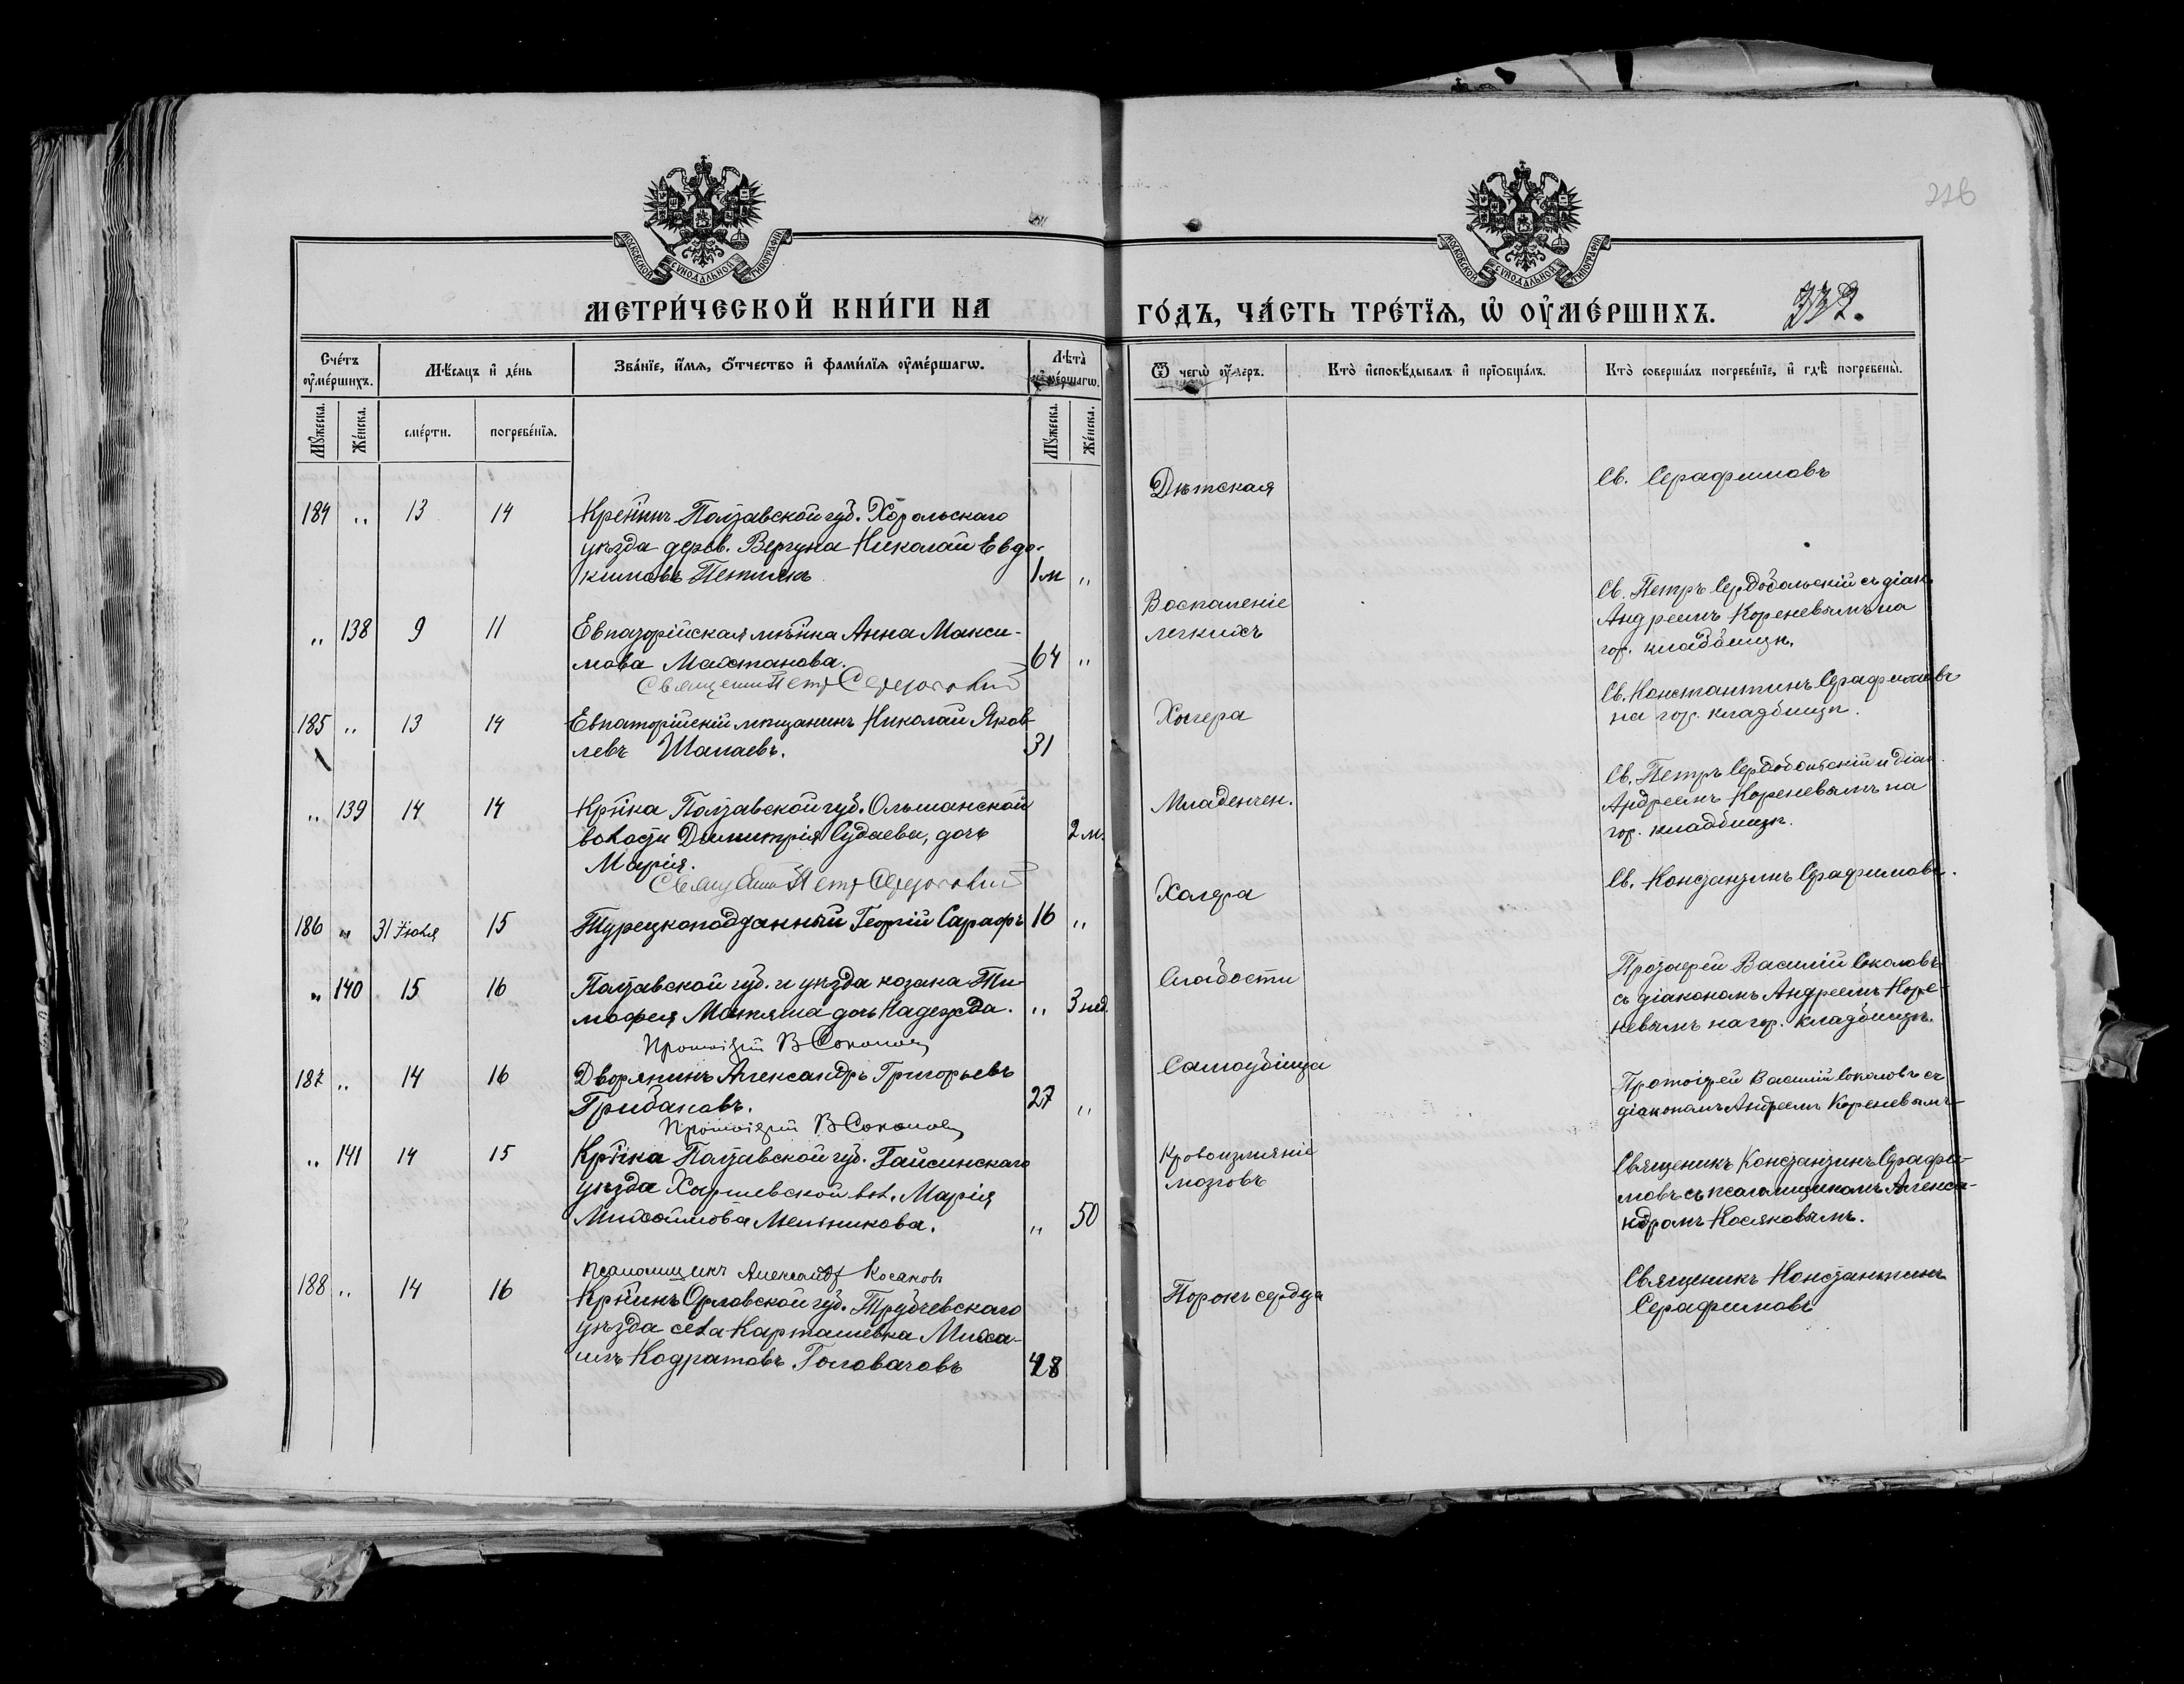 226
МОСКОВСКОЙ СѴНОДАЛЬНОЙ ТИПОГРАФІИ
МОСКОВСКОЙ СѴНОДАЛЬНОЙ ТИПОГРАФІИ
МЕТРИ́ЧЕСКОЙ КНИ́ГИ НА ГО́ДЪ, ЧА́СТЬ ТРЕ́ТЇѦ, Ѡ҆ ОУ҆МЕ́РШИХЪ.
Сче́тъ оу҆ме́ршихъ.
Мѣ́сѧцъ и҆ де́нь
Зва́нїе, и҆́мѧ, ѻ҆́тчество и҆ фамі́лїѧ оу҆ме́ршагѡ.
Лѣ̀та оу҆ме́ршагѡ.
Ѿ чегѡ̀ оу҆́меръ.
Кто̀ и҆сповѣ́дывалъ и҆ прїѻбща́лъ.
Кто̀ соверша́лъ погребе́нїе, и҆ гдѣ̀ погребены̀.
Мꙋ́жеска. Же́нска. сме́рти. погребе́нїѧ. Мꙋ́жеска. Же́нска.
184 " 13 14 Кр-нинъ Полтавской губ. Хорольскаго
уѣзда дерев. Вергуна Николай Евдо-
кимовъ Петликъ 1 м "
Дѣтская
Св. Серафимовъ
" 138 9 11 Евпаторійская мѣ-нка Анна Макси-
мова Маштанова. 64 "
Священ Петр Сердобольскій
Воспаленіе
легкихъ
Св. Петръ Сердобольскій съ діак.
Андреемъ Кореневымъ на
гор. кладбищѣ.
185 " 13 14 Евпаторійскій мѣщанинъ Николай Яков-
левъ Шапаевъ. 31
Холера
Св. Константинъ Серафимовъ
на гор. кладбищѣ.
" 139 14 14 Кр-нка Полтавской губ. Ольшанской
волости Димитрія Судаева, дочь
Марія. 2 м.
Священ Петр Сердобольскій
Младенчен.
Св. Петръ Сердобольскій и діак.
Андреемъ Кореневымъ на
гор. кладбищѣ.
186 " 31 Іюля 15 Турецкоподданный Георгій Сарафъ 16 "
Холера
Св. Константинъ Серафимовъ.
" 140 15 16 Полтавской губ. и уѣзда козака Ти-
мофея Мотяша дочь Надежда. " 3 нед.
Протоіерей В Соколовъ
Слабости
Протоіерей Василій Соколовъ
съ діакономъ Андреемъ Коре-
невымъ на гор. кладбищѣ.
187 " 14 16 Дворянинъ Александръ Григорьевъ
Грибановъ. 27 "
Протоіерей В Соколовъ
Самоубійца
Протоіерей Василій Соколовъ съ
діакономъ Андреемъ Кореневымъ
" 141 14 15 Кр-нка Полтавской губ. Гайсинскаго
уѣзда Харшевской вол. Марія
Михайлова Мельникова. " 50
Псаломщикъ Александръ Косяковъ
Кровоизліяніе
мозговъ
Священикъ Константинъ Серафи-
мовъ съ псаломщикомъ Алекса-
ндромъ Косяковымъ.
188 " 14 16 Кр-нинъ Орловской губ. Трубчевскаго
уѣзда села Карташевка Миха-
илъ Кодратовъ Головачовъ 48
Порокъ сердца
Священикъ Константинъ
Серафимовъ